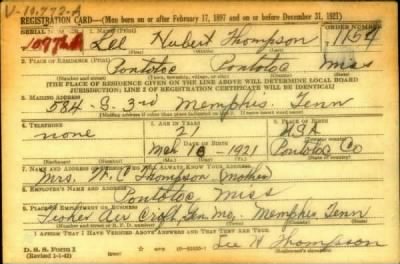 V-10,772-A
REGISTRATION CARD—(Men born on or after February 17, 1897 and on or before December 31, 1921)
SERIAL NUMBER 1. NAME (Print) ORDER NUMBER
Lee Hubert Thompson 1154
(First) (Middle) (Last)
2. PLACE OF RESIDENCE (Print)
Pontotoc Pontotoc Miss
(Number and street) (Town, township, village, or city) (County) (State)
[THE PLACE OF RESIDENCE GIVEN ON THE LINE ABOVE WILL DETERMINE LOCAL BOARD
JURISDICTION; LINE 2 OF REGISTRATION CERTIFICATE WILL BE IDENTICAL]
3. MAILING ADDRESS
584 - S. 3rd Memphis. Tenn
4. TELEPHONE 5. AGE IN YEARS 6. PLACE OF BIRTH
none 21 USA
DATE OF BIRTH
Mch 16 - 1921 Pontotoc Co
(Exchange) (Number) (Mo.) (Day) (Yr.) (State or country)
7. NAME AND ADDRESS OF PERSON WHO WILL ALWAYS KNOW YOUR ADDRESS
Mrs. W. C Thompson Mother
8. EMPLOYER'S NAME AND ADDRESS
Pontotoc Miss
9. PLACE OF EMPLOYMENT OR BUSINESS
Fisher Air Craft, Gen Mo, Memphis, Tenn
I AFFIRM THAT I HAVE VERIFIED ABOVE ANSWERS AND THAT THEY ARE TRUE.
D. S. S. Form 1
(Revised 1-1-42)
Lee H Thompson
(Registrant's signature)